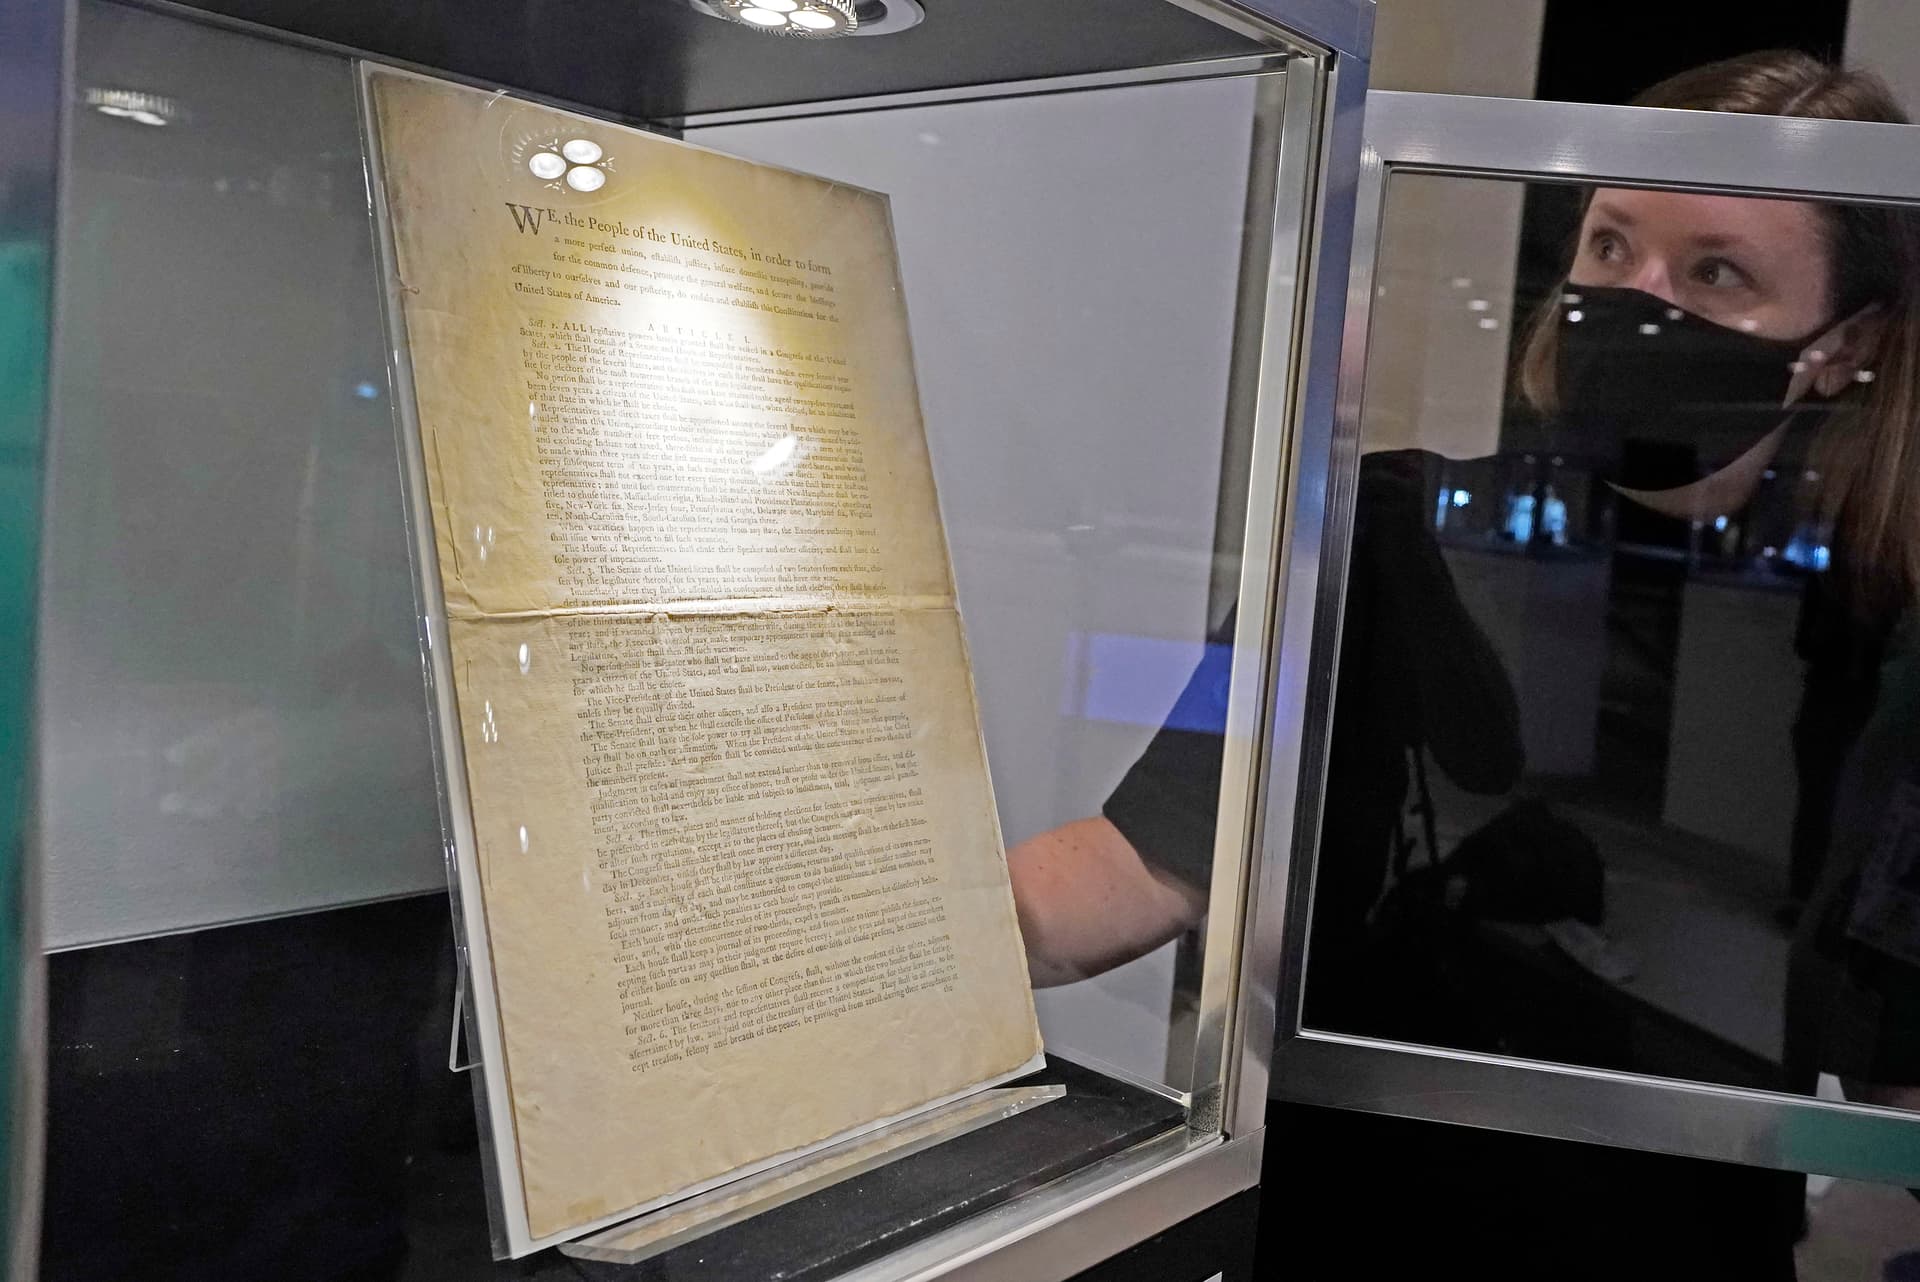 WE, the People of the United States, in order to form
a more perfect union, eſtabliſh juſtice, inſure domeſtic tranquility, provide
for the common defence, promote the general welfare, and ſecure the bleſſings
of liberty to ourſelves and our poſterity, do ordain and eſtabliſh this Conſtitution for the
United States of America.
ARTICLE I.
Sect. 1. ALL legiſlative powers herein granted ſhall be veſted in a Congreſs of the United
States, which ſhall conſiſt of a Senate and Houſe of Repreſentatives.
Sect. 2. The Houſe of Repreſentatives ſhall be compoſed of members choſen every ſecond year
by the people of the ſeveral ſtates, and the electors in each ſtate ſhall have the qualifications requi-
ſite for electors of the moſt numerous branch of the ſtate legiſlature.
No perſon ſhall be a repreſentative who ſhall not have attained to the age of twenty-five years, and
been ſeven years a citizen of the United States, and who ſhall not, when elected, be an inhabitant
of that ſtate in which he ſhall be choſen.
Repreſentatives and direct taxes ſhall be apportioned among the ſeveral ſtates which may be in-
cluded within this Union, according to their reſpective numbers, which ſhall be determined by add-
ing to the whole number of free perſons, including thoſe bound to for a term of years,
and excluding Indians not taxed, three-fifths of all other perſons. actual enumeration ſhall
be made within three years after the firſt meeting of the Congreſs United States, and within
every ſubſequent term of ten years, in ſuch manner as they law direct. The number of
repreſentatives ſhall not exceed one for every thirty thouſand, but each ſtate ſhall have at leaſt one
repreſentative; and until ſuch enumeration ſhall be made, the ſtate of New-Hampſhire ſhall be en-
titled to chuſe three, Maſſachuſetts eight, Rhode-Iſland and Providence Plantations one, Connecticut
five, New-York ſix, New-Jerſey four, Pennſylvania eight, Delaware one, Maryland ſix, Virginia
ten, North-Carolina five, South-Carolina five, and Georgia three.
When vacancies happen in the repreſentation from any ſtate, the Executive authority thereof
ſhall iſſue writs of election to fill ſuch vacancies.
The Houſe of Repreſentatives ſhall chuſe their Speaker and other officers; and ſhall have the
ſole power of impeachment.
Sect. 3. The Senate of the United States ſhall be compoſed of two ſenators from each ſtate, cho-
ſen by the legiſlature thereof, for ſix years; and each ſenator ſhall have one vote.
Immediately after they ſhall be aſſembled in conſequence of the firſt election, they ſhall be divi-
ded as equally as may be into three claſſes.
of the third claſs at the expiration of the ſixth year, ſo that one-third may be choſen every ſecond
year; and if vacancies happen by reſignation, or otherwiſe, during the receſs of the Legiſlature of
any ſtate, the Executive thereof may make temporary appointments until the next meeting of the
Legiſlature, which ſhall then fill ſuch vacancies.
No perſon ſhall be a ſenator who ſhall not have attained to the age of thirty years, and been nine
years a citizen of the United States, and who ſhall not, when elected, be an inhabitant of that ſtate
for which he ſhall be choſen.
The Vice-Preſident of the United States ſhall be Preſident of the ſenate, but ſhall have no vote,
unleſs they be equally divided.
The Senate ſhall chuſe their other officers, and alſo a Preſident pro tempore, in the abſence of
the Vice-Preſident, or when he ſhall exerciſe the office of Preſident of the United States.
The Senate ſhall have the ſole power to try all impeachments. When ſitting for that purpoſe,
they ſhall be on oath or affirmation. When the Preſident of the United States is tried, the Chief
Juſtice ſhall preſide: And no perſon ſhall be convicted without the concurrence of two-thirds of
the members preſent.
Judgment in caſes of impeachment ſhall not extend further than to removal from office, and diſ-
qualification to hold and enjoy any office of honor, truſt or profit under the United States; but the
party convicted ſhall nevertheleſs be liable and ſubject to indictment, trial, judgment and puniſh-
ment, according to law.
Sect. 4. The times, places and manner of holding elections for ſenators and repreſentatives, ſhall
be preſcribed in each ſtate by the legiſlature thereof; but the Congreſs may at any time by law make
or alter ſuch regulations, except as to the places of chuſing Senators.
The Congreſs ſhall aſſemble at leaſt once in every year, and ſuch meeting ſhall be on the firſt Mon-
day in December, unleſs they ſhall by law appoint a different day.
Sect. 5. Each houſe ſhall be the judge of the elections, returns and qualifications of its own mem-
bers, and a majority of each ſhall conſtitute a quorum to do buſineſs; but a ſmaller number may
adjourn from day to day, and may be authoriſed to compel the attendance of abſent members, in
ſuch manner, and under ſuch penalties as each houſe may provide.
Each houſe may determine the rules of its proceedings, puniſh its members for diſorderly beha-
viour, and, with the concurrence of two-thirds, expel a member.
Each houſe ſhall keep a journal of its proceedings, and from time to time publiſh the ſame, ex-
cepting ſuch parts as may in their judgment require ſecrecy; and the yeas and nays of the members
of either houſe on any queſtion ſhall, at the deſire of one-fifth of thoſe preſent, be entered on the
journal.
Neither houſe, during the ſeſſion of Congreſs, ſhall, without the conſent of the other, adjourn
for more than three days, nor to any other place than that in which the two houſes ſhall be ſitting.
Sect. 6. The ſenators and repreſentatives ſhall receive a compenſation for their ſervices, to be
aſcertained by law, and paid out of the treaſury of the United States. They ſhall in all caſes, ex-
cept treaſon, felony and breach of the peace, be privileged from arreſt during their attendance at
the